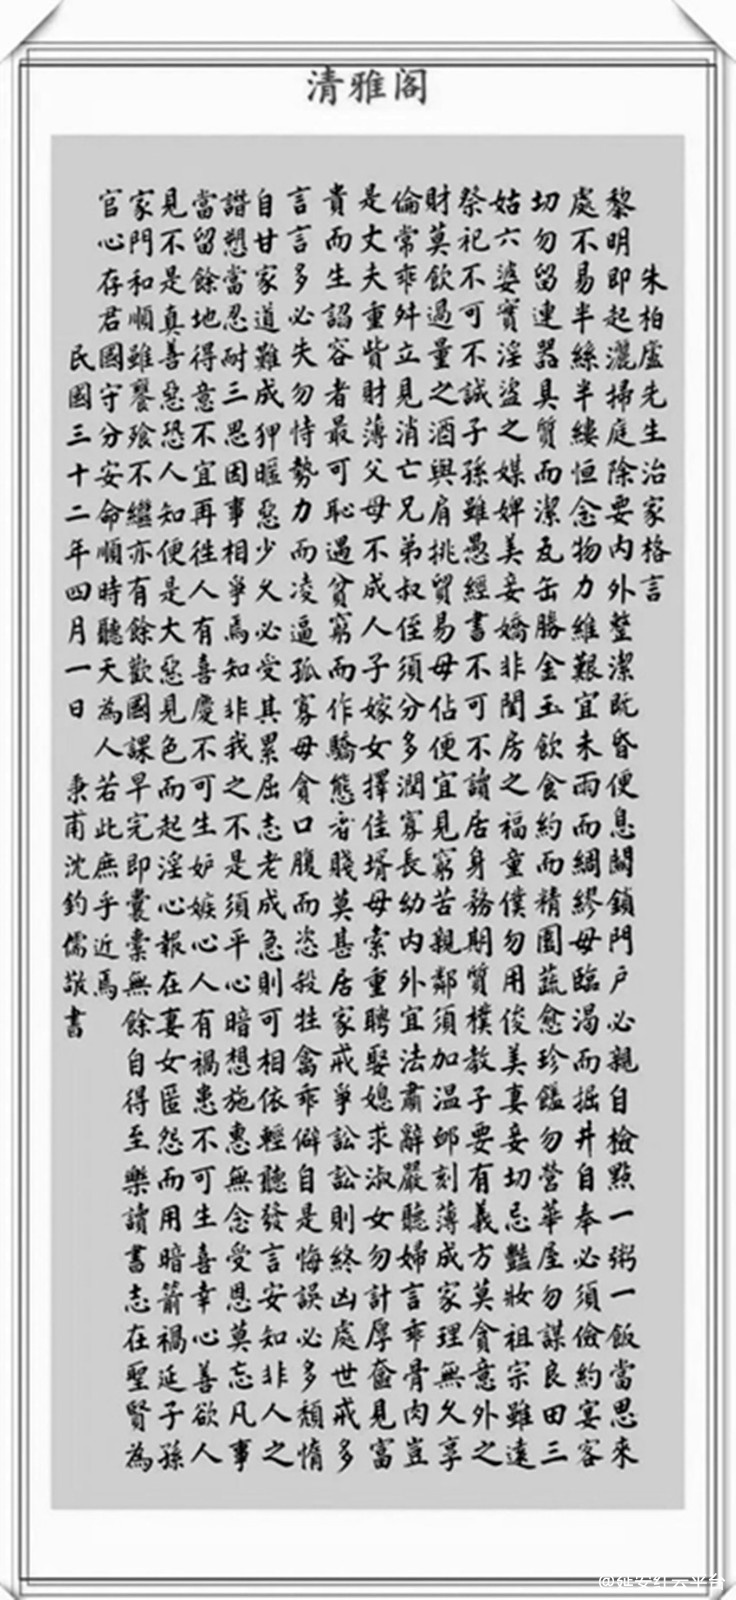 清雅阁
朱柏廬先生治家格言
黎明即起灑掃庭除要內外整潔既昏便息關鎖門戶必親自檢點一粥一飯當思來
處不易半絲半縷恒念物力維艱宜未雨而綢繆毋臨渴而掘井自奉必須儉約宴客
切勿留連器具質而潔瓦缶勝金玉飲食約而精園蔬愈珍饈勿營華屋勿謀良田三
姑六婆實淫盜之媒婢美妾嬌非閨房之福童僕勿用俊美妻妾切忌豔妝祖宗雖遠
祭祀不可不誠子孫雖愚經書不可不讀居身務期質樸教子要有義方莫貪意外之
財莫飲過量之酒與肩挑貿易毋佔便宜見窮苦親鄰須加温卹刻薄成家理無久享
倫常乖舛立見消亡兄弟叔侄須分多潤寡長幼內外宜法肅辭嚴聽婦言乖骨肉豈
是丈夫重貲財薄父母不成人子嫁女擇佳壻毋索重聘娶媳求淑女勿計厚奩見富
貴而生諂容者最可恥遇貧窮而作驕態者賤莫甚居家戒爭訟訟則終凶處世戒多
言言多必失勿恃勢力而凌逼孤寡毋貪口腹而恣殺牲禽乖僻自是悔誤必多頹惰
自甘家道難成狎暱惡少久必受其累屈志老成急則可相依輕聽發言安知非人之
譖愬當忍耐三思因事相爭焉知非我之不是須平心暗想施惠無念受恩莫忘凡事
當留餘地得意不宜再往人有喜慶不可生妒嫉心人有禍患不可生喜幸心善欲人
見不是真善惡恐人知便是大惡見色而起淫心報在妻女匿怨而用暗箭禍延子孫
家門和順雖饔飧不繼亦有餘歡國課早完即囊橐無餘自得至樂讀書志在聖賢為
官心存君國守分安命順時聽天為人若此庶乎近焉
民國三十二年四月一日 秉甫沈鈞儒敬書
@延安红云平台